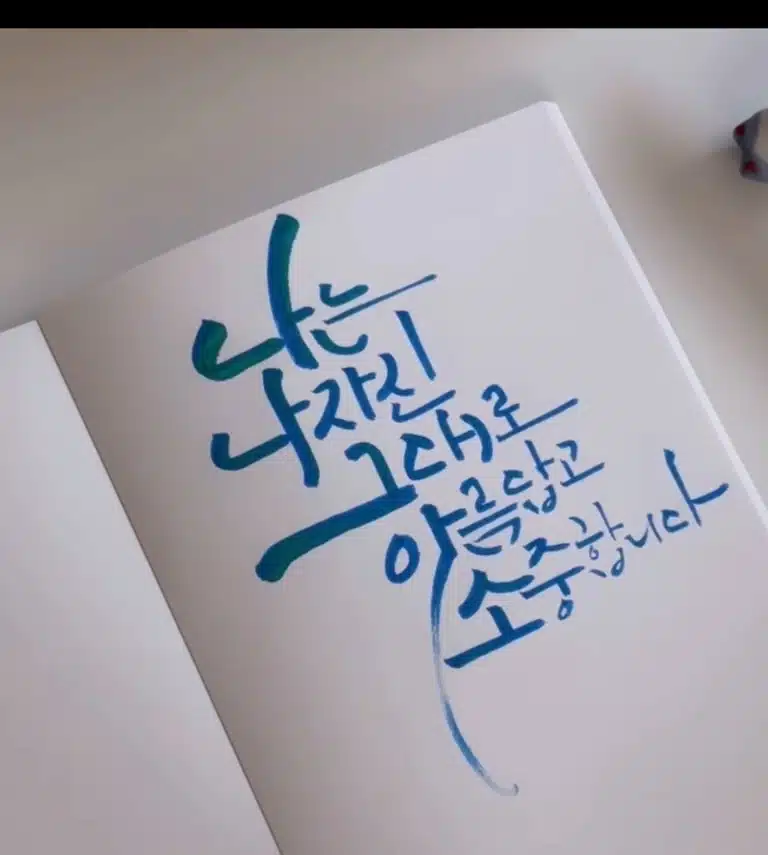 나는
나 자신
그대로
아름답고
소중합니다